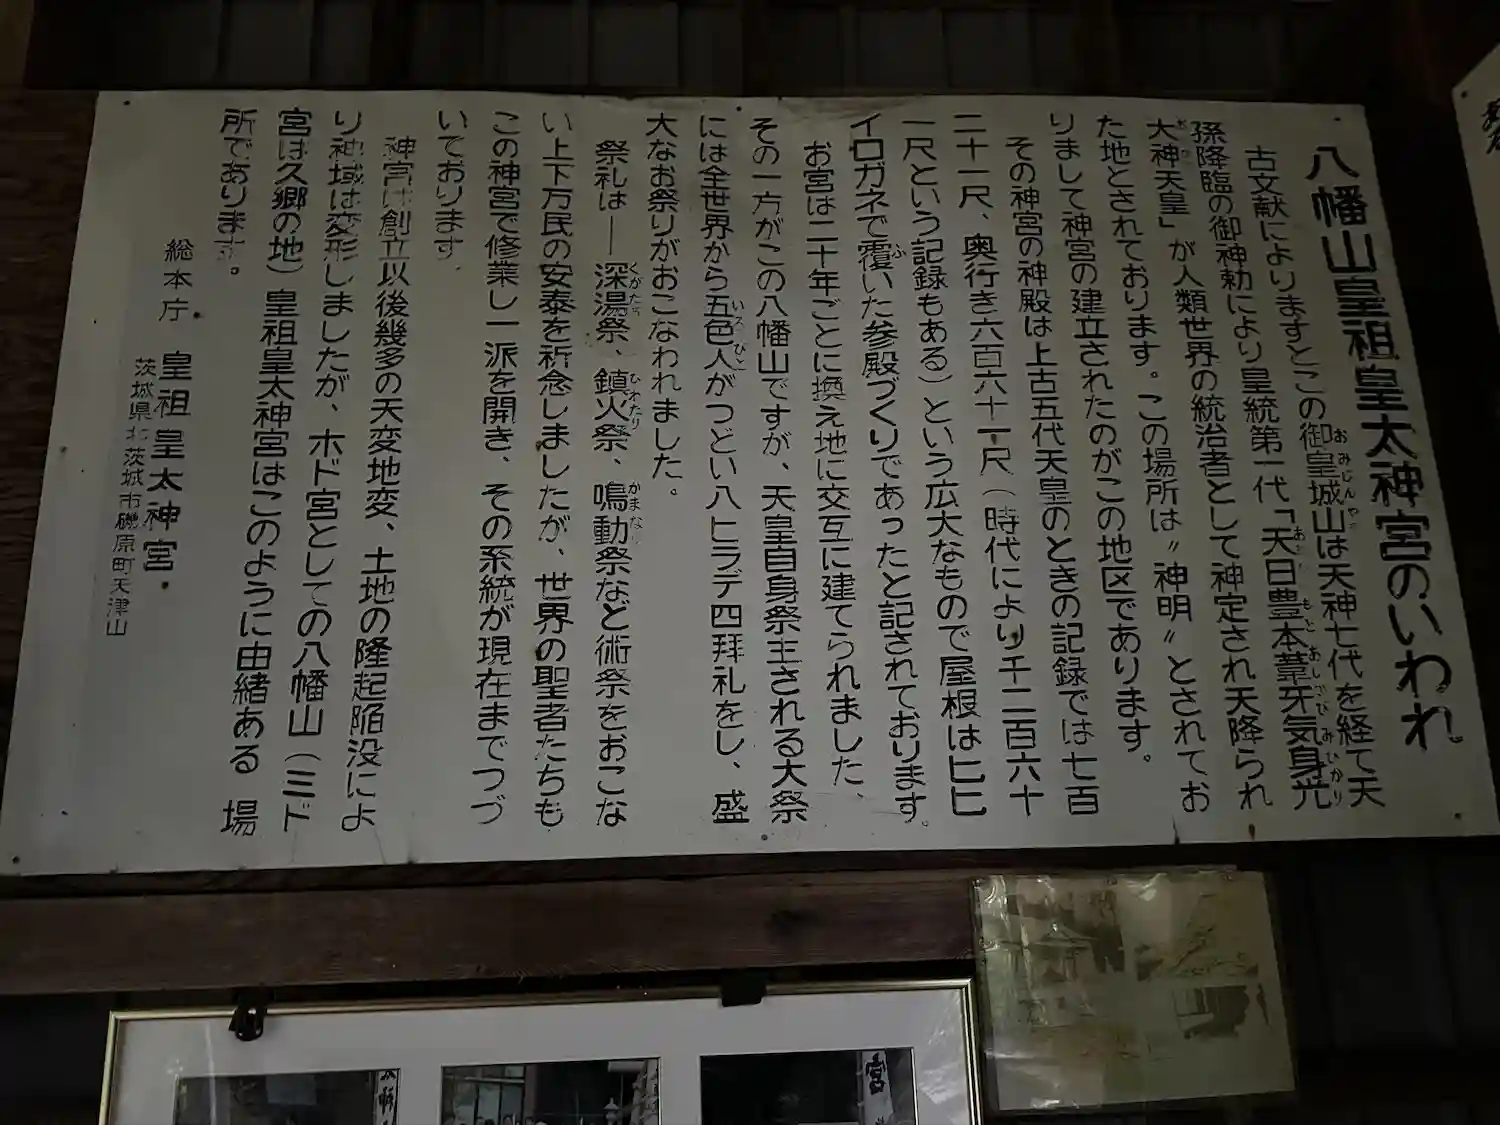 八幡山皇祖皇太神宮のいわれ
古文献によりますとこの御皇城山は天神七代を経て天
孫降臨の御神勅により皇統第一代「天日豊本葦牙気身光
大神天皇」が人類世界の統治者として神定され天降られ
た地とされております。この場所は〃神明〃とされてお
りまして神宮の建立されたのがこの地区であります。
その神宮の神殿は上古五代天皇のときの記録では七百
二十一尺、奥行き六百六十一尺（時代により千二百六十
一尺という記録もある）という広大なもので屋根はヒヒ
イロガネで覆いた参殿づくりであったと記されております。
お宮は二十年ごとに換え地に交互に建てられました、
その一方がこの八幡山ですが、天皇自身祭主される大祭
には全世界から五色人がつどい八ヒラデ四拝礼をし、盛
大なお祭りがおこなわれました。
祭礼は――深湯祭、鎮火祭、鳴動祭など術祭をおこな
い上下万民の安泰を祈念しましたが、世界の聖者たちも
この神宮で修業し一派を開き、その系統が現在までつづ
いております.
神宮は創立以後幾多の天変地変、土地の隆起陥没によ
り神域は変形しましたが、ホド宮としての八幡山（ミド
宮は久郷の地）皇祖皇太神宮はこのように由緒ある 場
所であります。
総本庁 皇祖皇太神宮
茨城県北茨城市磯原町天津山